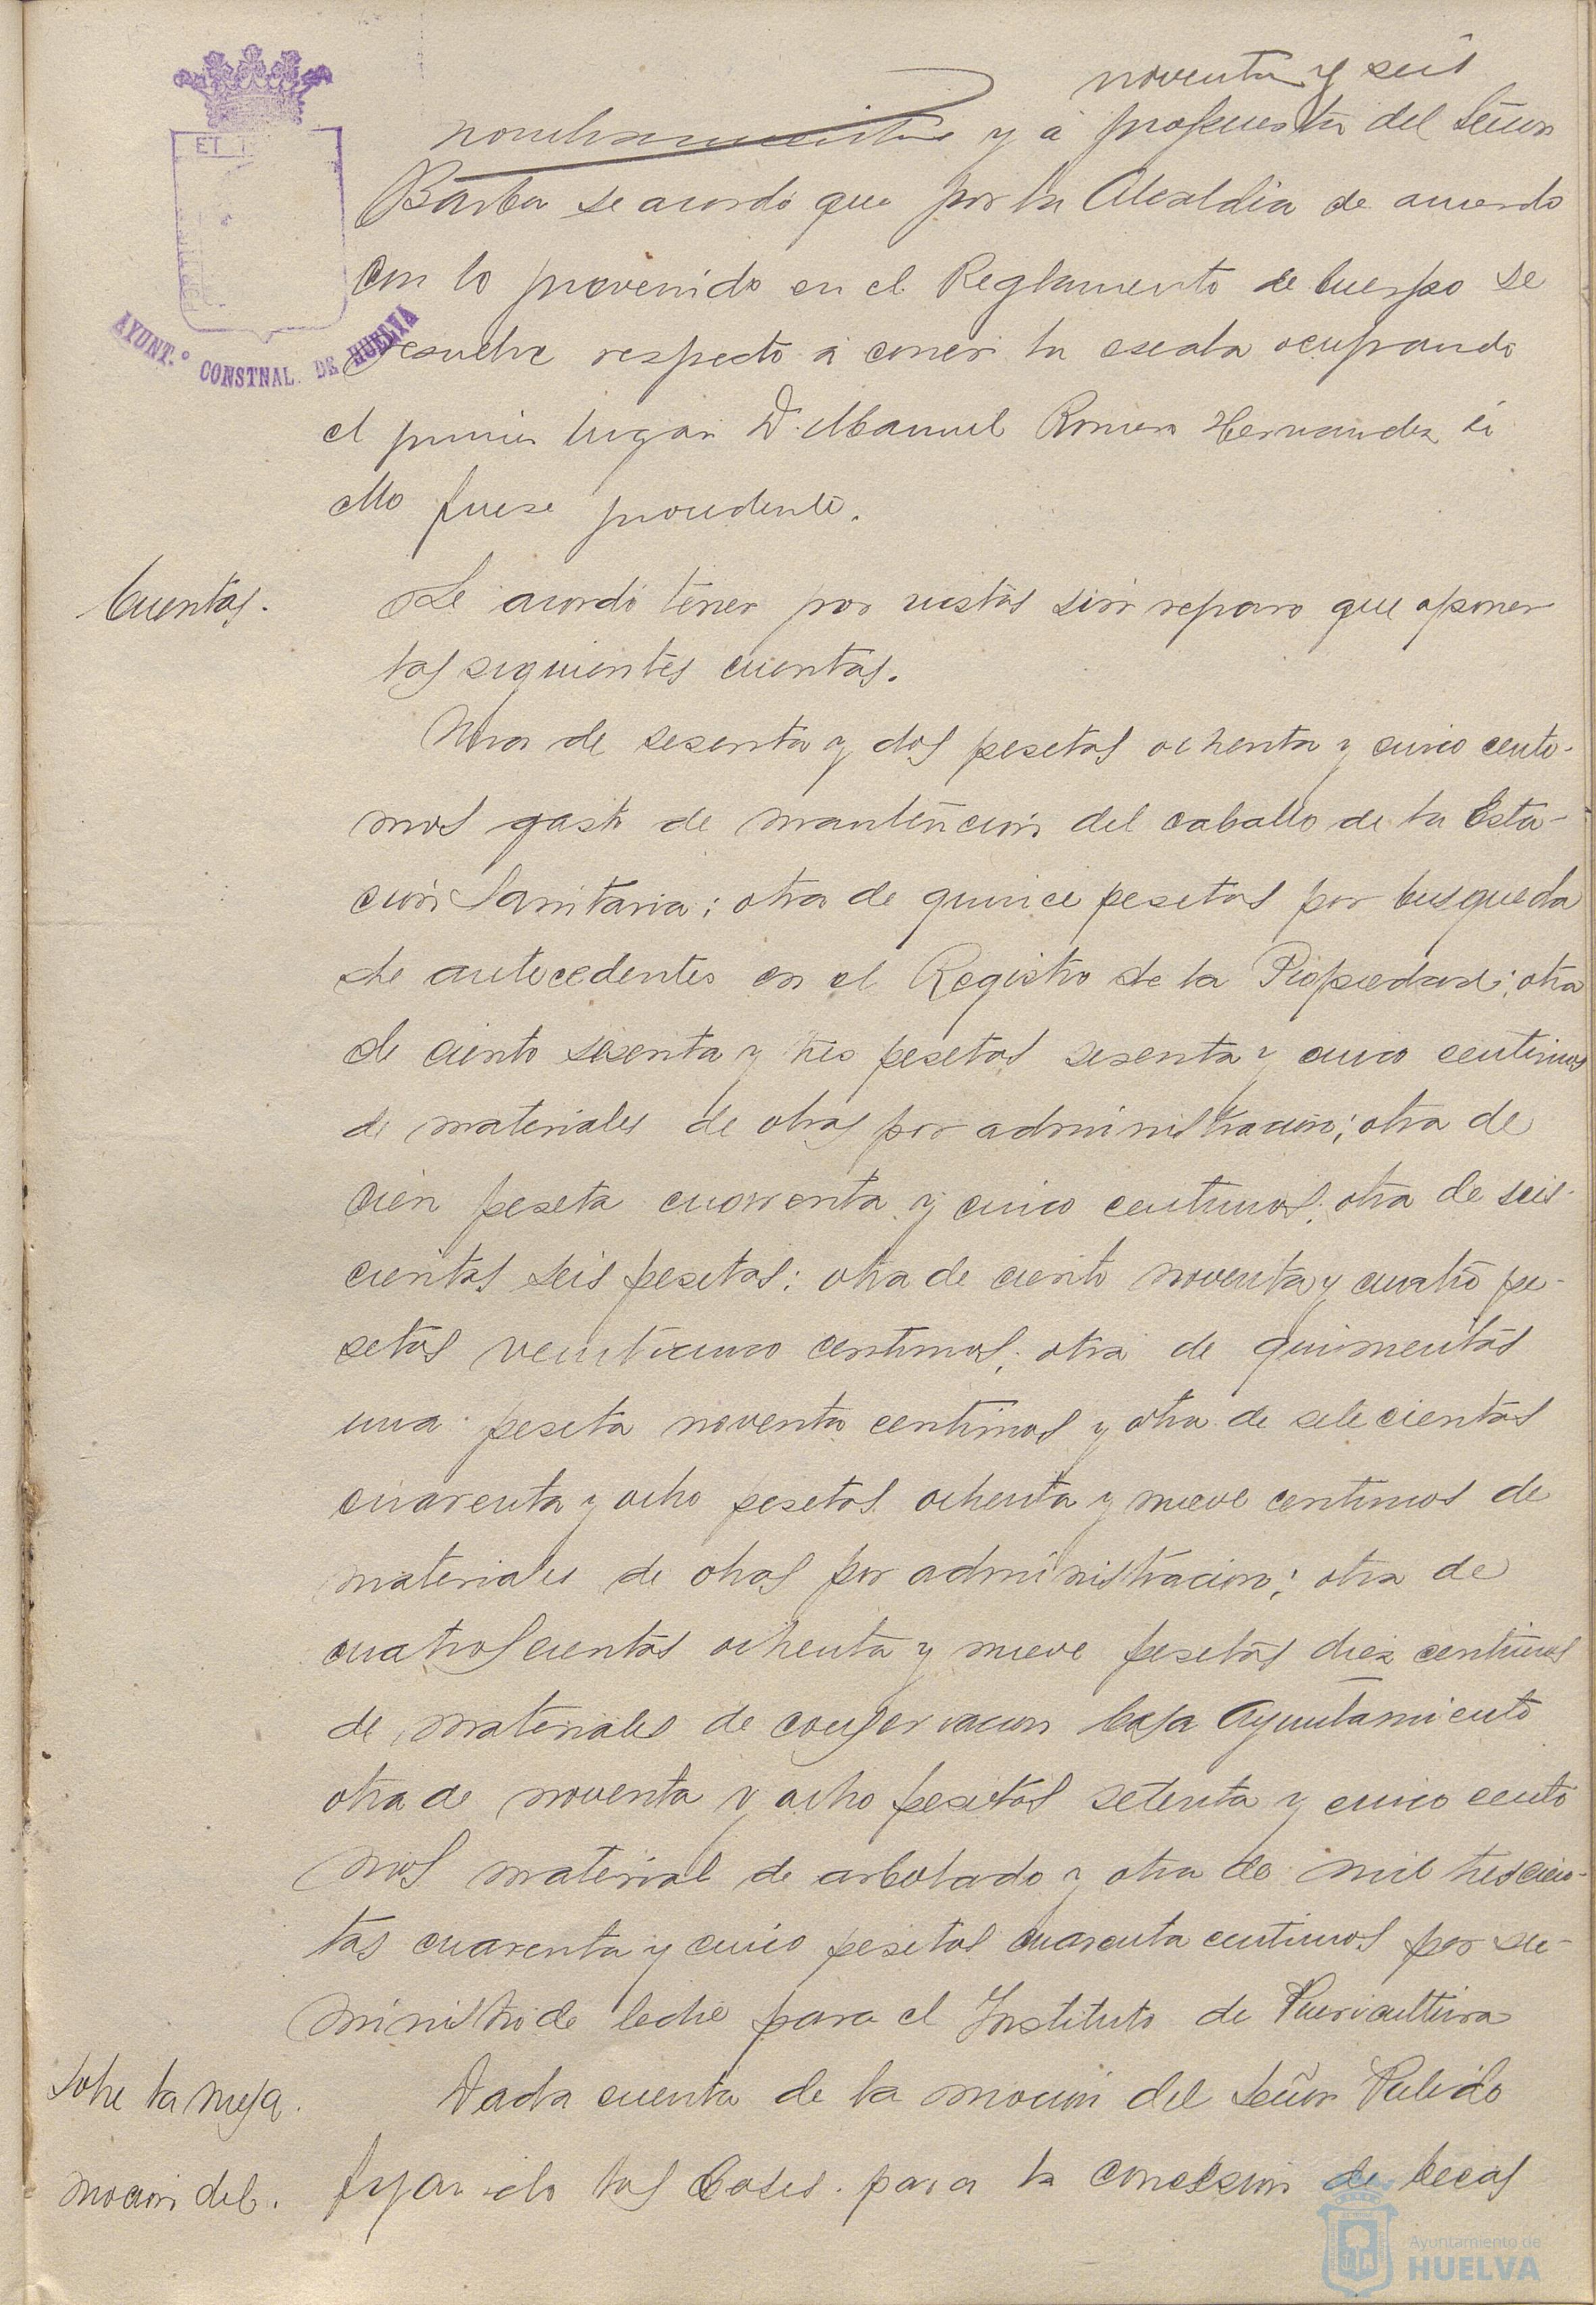 noventa y seis
ET
nombramiento y á propuesta del Señor
Barba se acordó que por la Alcaldia de acuerdo
con lo prevenido en el Reglamento de Cuerpo se
AYUNT.º CONSTNAL. DE HUELVA
resuelve respecto á correr la escala ocupando
el primer lugar D. Manuel Romero Hernandez si
ello fuese procedente.
Cuentas.
Se acordó tener por vistas sin reparo que oponer
las siguientes cuentas.
Una de sesenta y dos pesetas ochenta y cinco centi-
mos gasto de mantención del caballo de la Esta-
ción Sanitaria; otra de quince pesetas por busqueda
de antecedentes en el Registro de la Propiedad; otra
de ciento sesenta y tres pesetas sesenta y cinco centimos
de materiales de obras por administracion; otra de
cien peseta cuarenta y cinco centimos; otra de seis-
cientas seis pesetas; otra de ciento noventa y cuatro pe-
setas veinticinco centimos; otra de quinientas
una peseta noventa centimos y otra de setecientas
cuarenta y ocho pesetas ochenta y nueve centimos de
materiales de obras por administracion; otra de
cuatroscientas ochenta y nueve pesetas diez centimos
de materiales de conservacion casa Ayuntamiento
otra de noventa y ocho pesetas setenta y cinco centi
mos material de arbolado y otra de mil trescien-
tas cuarenta y cinco pesetas cuarenta centimos por su-
ministro de leche para el Instituto de Puericultura
Sobre la mesa.
Dada cuenta de la mocion del Señor Pulido
mocion del.
fijando las bases para la concesion de becas
Ayuntamiento de
HUELVA